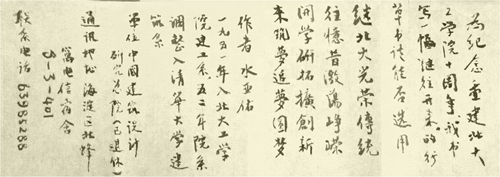 为纪念重建北大
工学院十周年,我书
写一幅继往开来的行
草书,请能否选用
继北大光荣传统
往忆昔激荡峥嵘
开学研拓擴創新
来筑夢追夢圆梦
作者 水亚佑
一九五一年入北大工学
院建工系五二年院系
调整入清华大学建
筑系
单位 中国建筑设计
研究总院(已退休)
通讯地址 海淀区北蜂
窝电信宿舍
5-3-401
联系电话 63985288